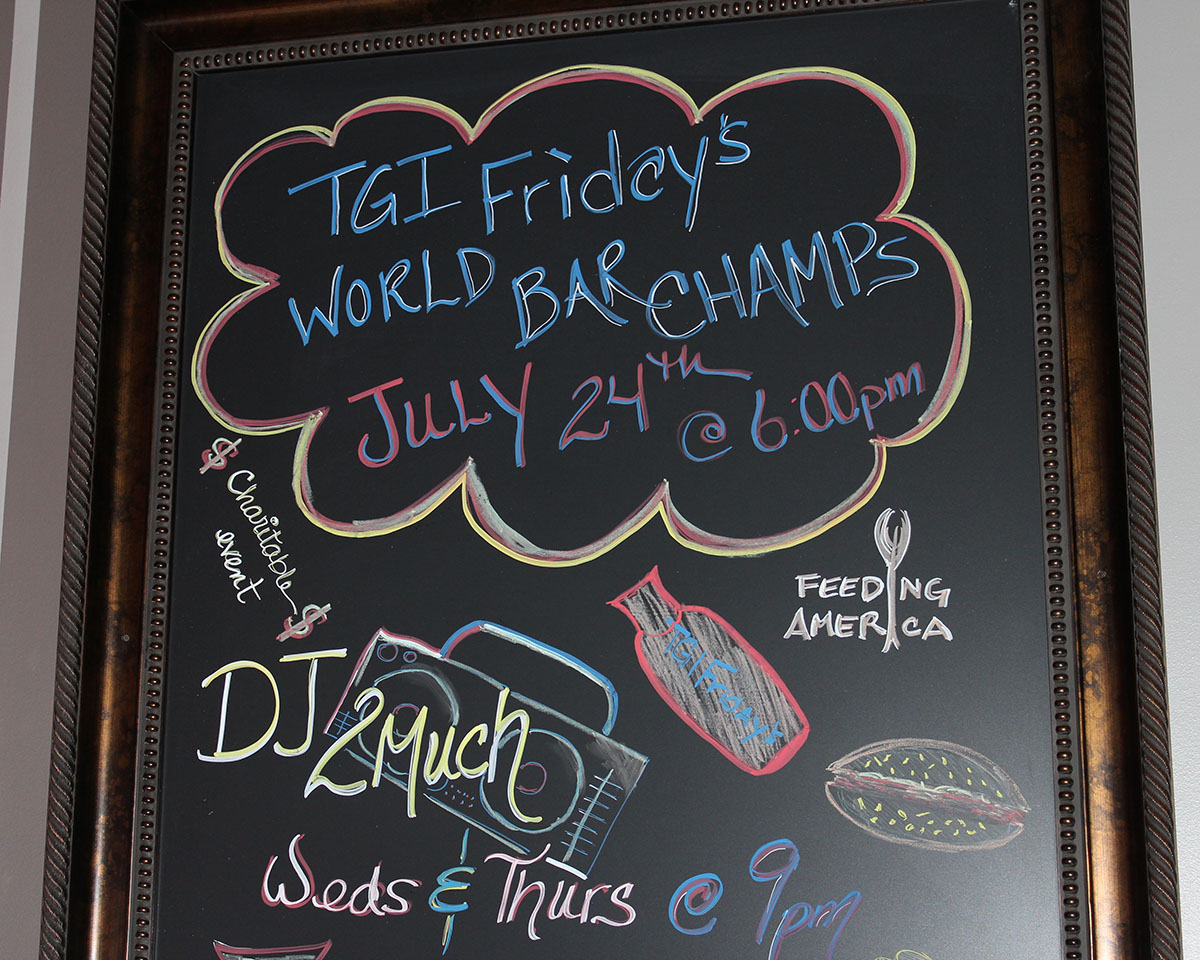 TGI Friday's
WORLD BAR CHAMPS
JULY 24th @ 6:00pm
$ Charitable
event $
FEEDING
AMERICA
TGI Friday's
DJ 2Much
Weds & Thurs @ 9pm